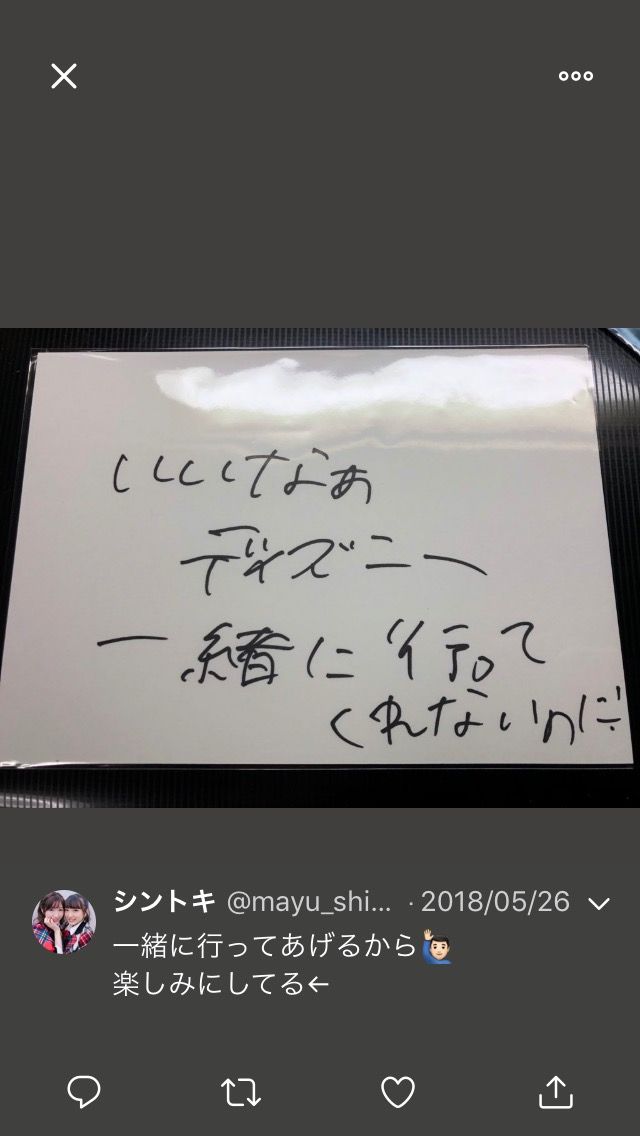 いいなぁ
ディズニー
一緒に行って
くれないのに
シントキ @mayu_shi... · 2018/05/26
一緒に行ってあげるから🙋🏻‍♂️
楽しみにしてる←